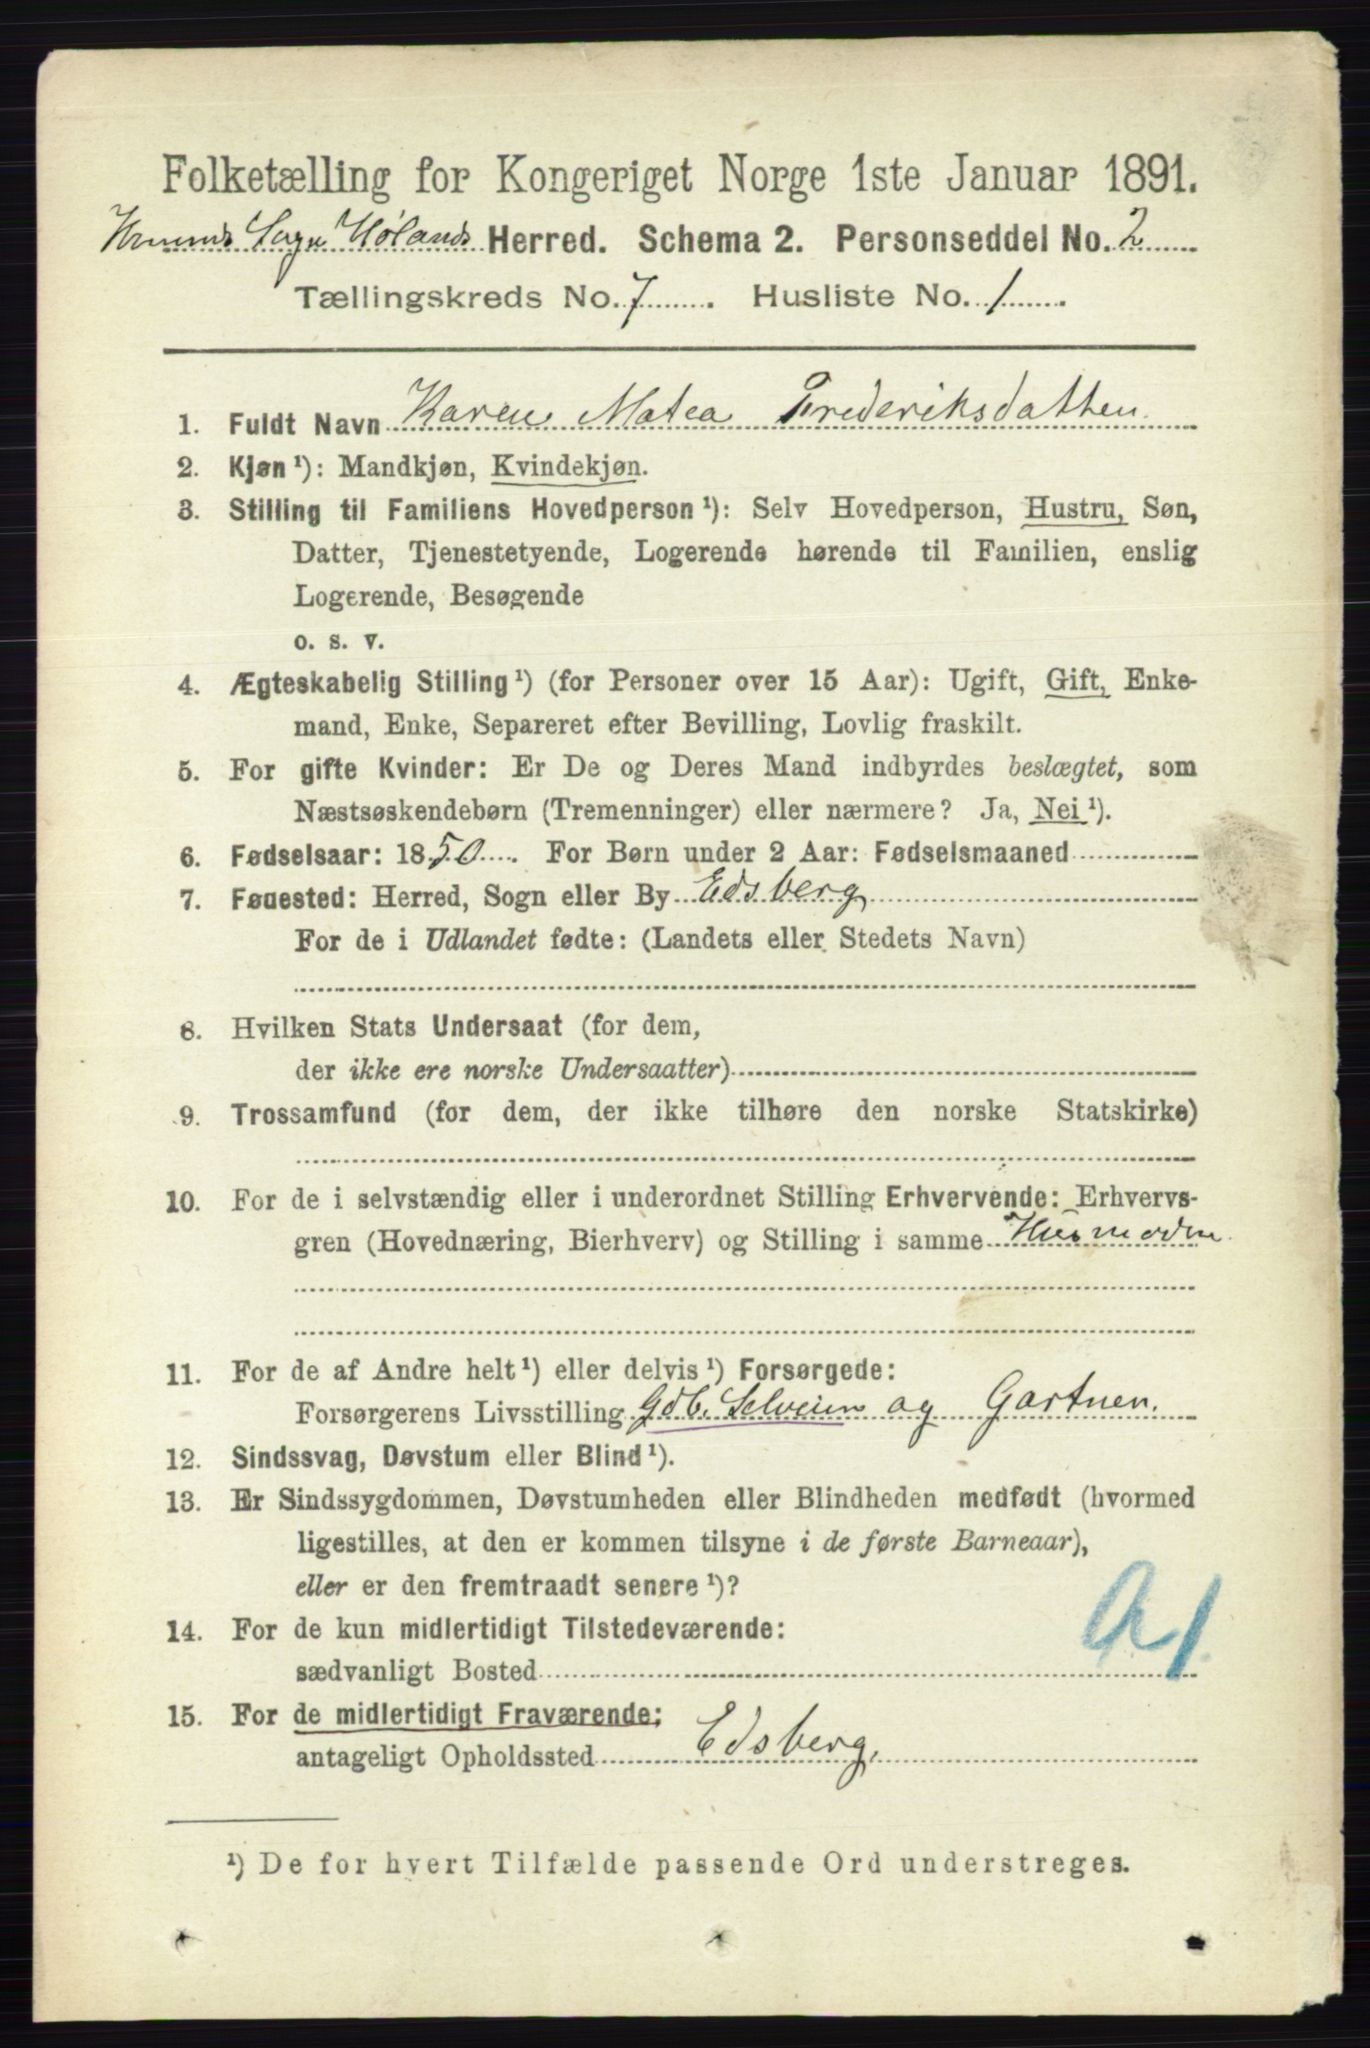 Folketælling for Kongeriget Norge 1ste Januar 1891.
Sogn Hølands Herred. Schema 2. Personseddel No. 2
Tællingskreds No. 7. Husliste No. 1.
1. Fuldt Navn Karen Matea Frederiksdatter.
2. Kjøn¹): Mandkjøn, Kvindekjøn.
3. Stilling til Familiens Hovedperson¹): Selv Hovedperson, Hustru, Søn,
Datter, Tjenestetyende, Logerende hørende til Familien, enslig
Logerende, Besøgende
o. s. v.
4. Ægteskabelig Stilling¹) (for Personer over 15 Aar): Ugift, Gift, Enke-
mand, Enke, Separeret efter Bevilling, Lovlig fraskilt.
5. For gifte Kvinder: Er De og Deres Mand indbyrdes beslægtet, som
Næstsøskendebørn (Tremenninger) eller nærmere? Ja, Nei¹).
6. Fødselsaar: 1850. For Børn under 2 Aar: Fødselsmaaned
7. Føuested: Herred, Sogn eller By Edsberg
For de i Udlandet fødte: (Landets eller Stedets Navn)
8. Hvilken Stats Undersaat (for dem,
der ikke ere norske Undersaatter)
9. Trossamfund (for dem, der ikke tilhøre den norske Statskirke)
10. For de i selvstændig eller i underordnet Stilling Erhvervende: Erhvervs-
gren (Hovednæring, Bierhverv) og Stilling i samme Husmoder
11. For de af Andre helt¹) eller delvis¹) Forsørgede:
Forsørgerens Livsstilling Gdb. Selveier og Gartner.
12. Sindssvag, Døvstum eller Blind¹).
13. Er Sindssygdommen, Døvstumheden eller Blindheden medfødt (hvormed
ligestilles, at den er kommen tilsyne i de første Barneaar),
eller er den fremtraadt senere¹)?
14. For de kun midlertidigt Tilstedeværende:
sædvanligt Bosted
A1
15. For de midlertidigt Fraværende:
antageligt Opholdssted Edsberg.
¹) De for hvert Tilfælde passende Ord understreges.